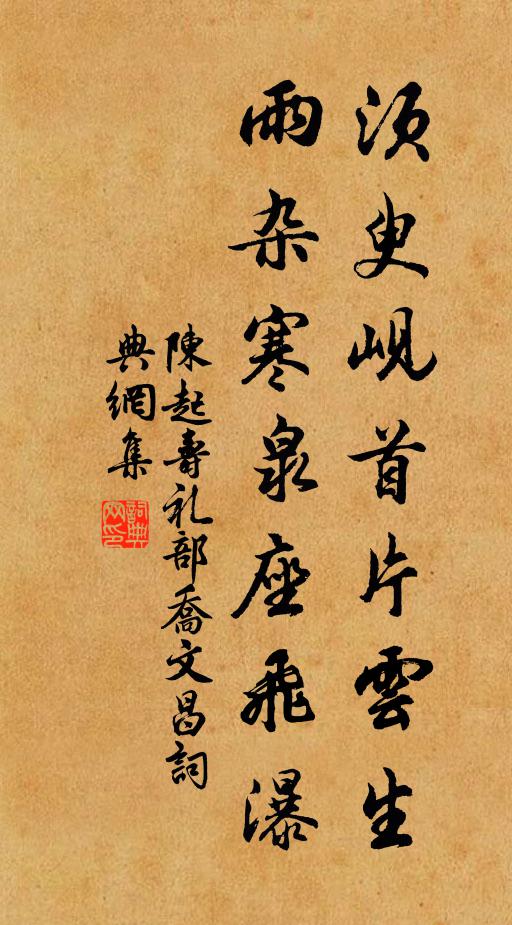 須臾峴首片雲生
雨杂寒泉座飛瀑
陳起壽礼部喬文昌詞
典網集
詞典网印